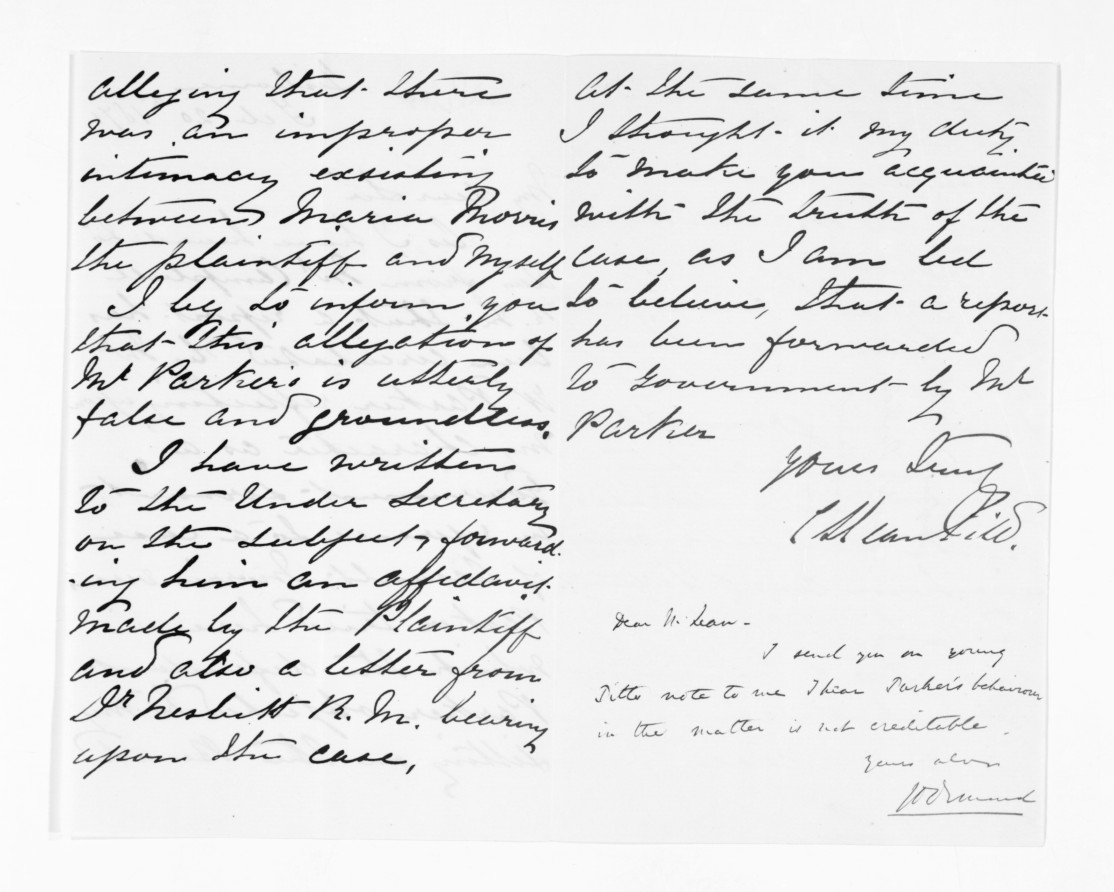 alleging that there
was an improper
intimacy exsisting
between Maria Morris
the plaintiff and myself
I beg to inform you
that this allegation of
Mr Parker's is utterly
false and groundless.
I have written
to the Under Secretary
on the subject, forward-
-ing him an affidavit
made by the Plaintiff
and also a letter from
Dr Nesbitt R.M. bearing
upon the case,
at the same time
I thought it my duty
to make you acquainted
with the truth of the
case, as I am led
to believe, that a report
has been forwarded
to Government by Mr
Parker
Yours truly
Dear McLean -
I send you on young
note to me I hear Parker's behaviour
in the matter is not creditable.
yours